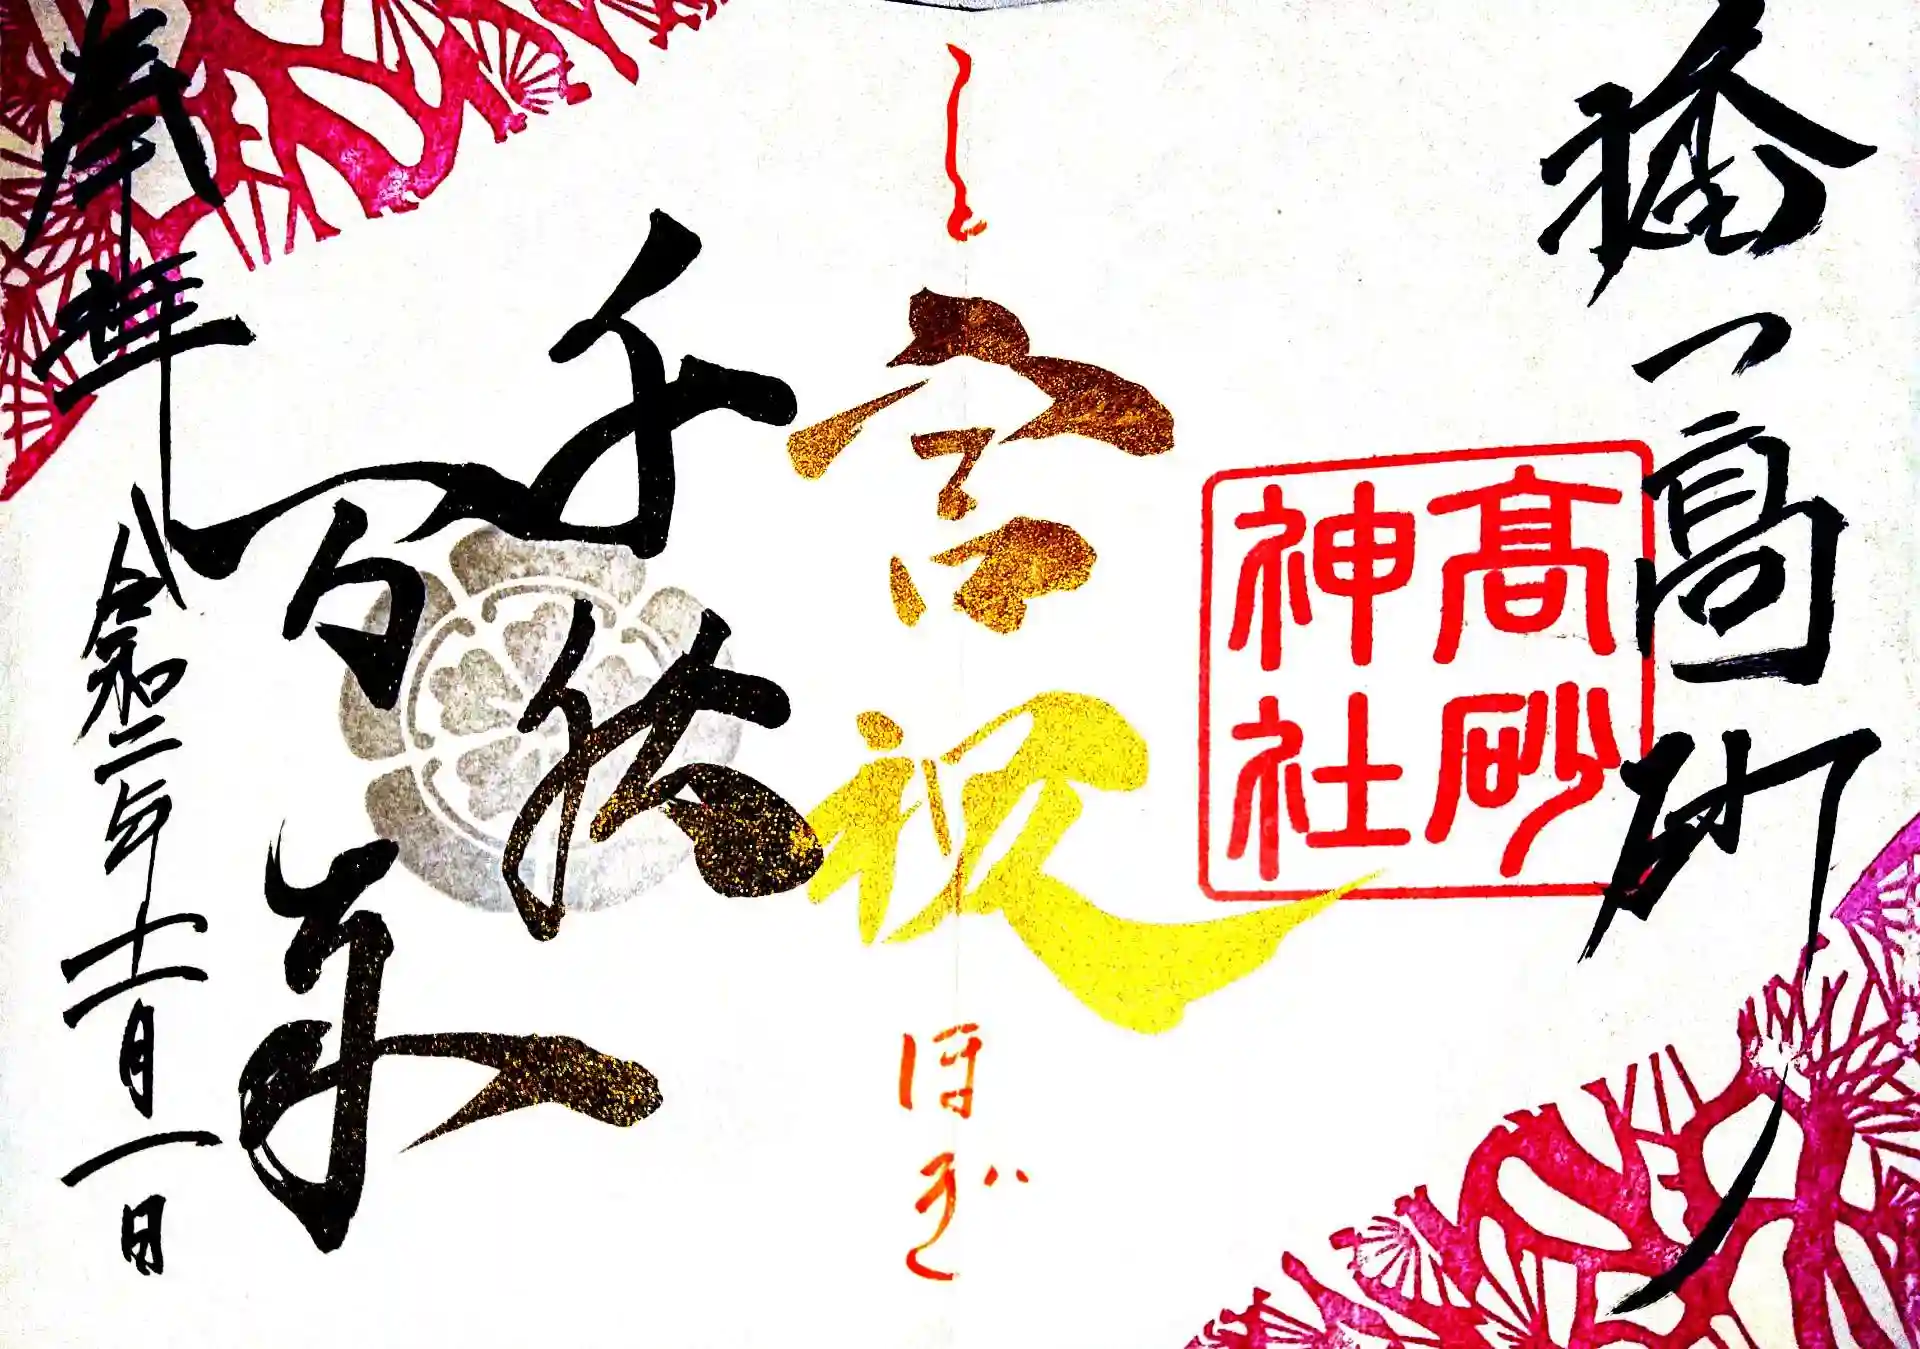 播
高砂
髙砂
神社
こと
言祝
ほぎ
千秋
万
奉拝
令和二年十一月一日